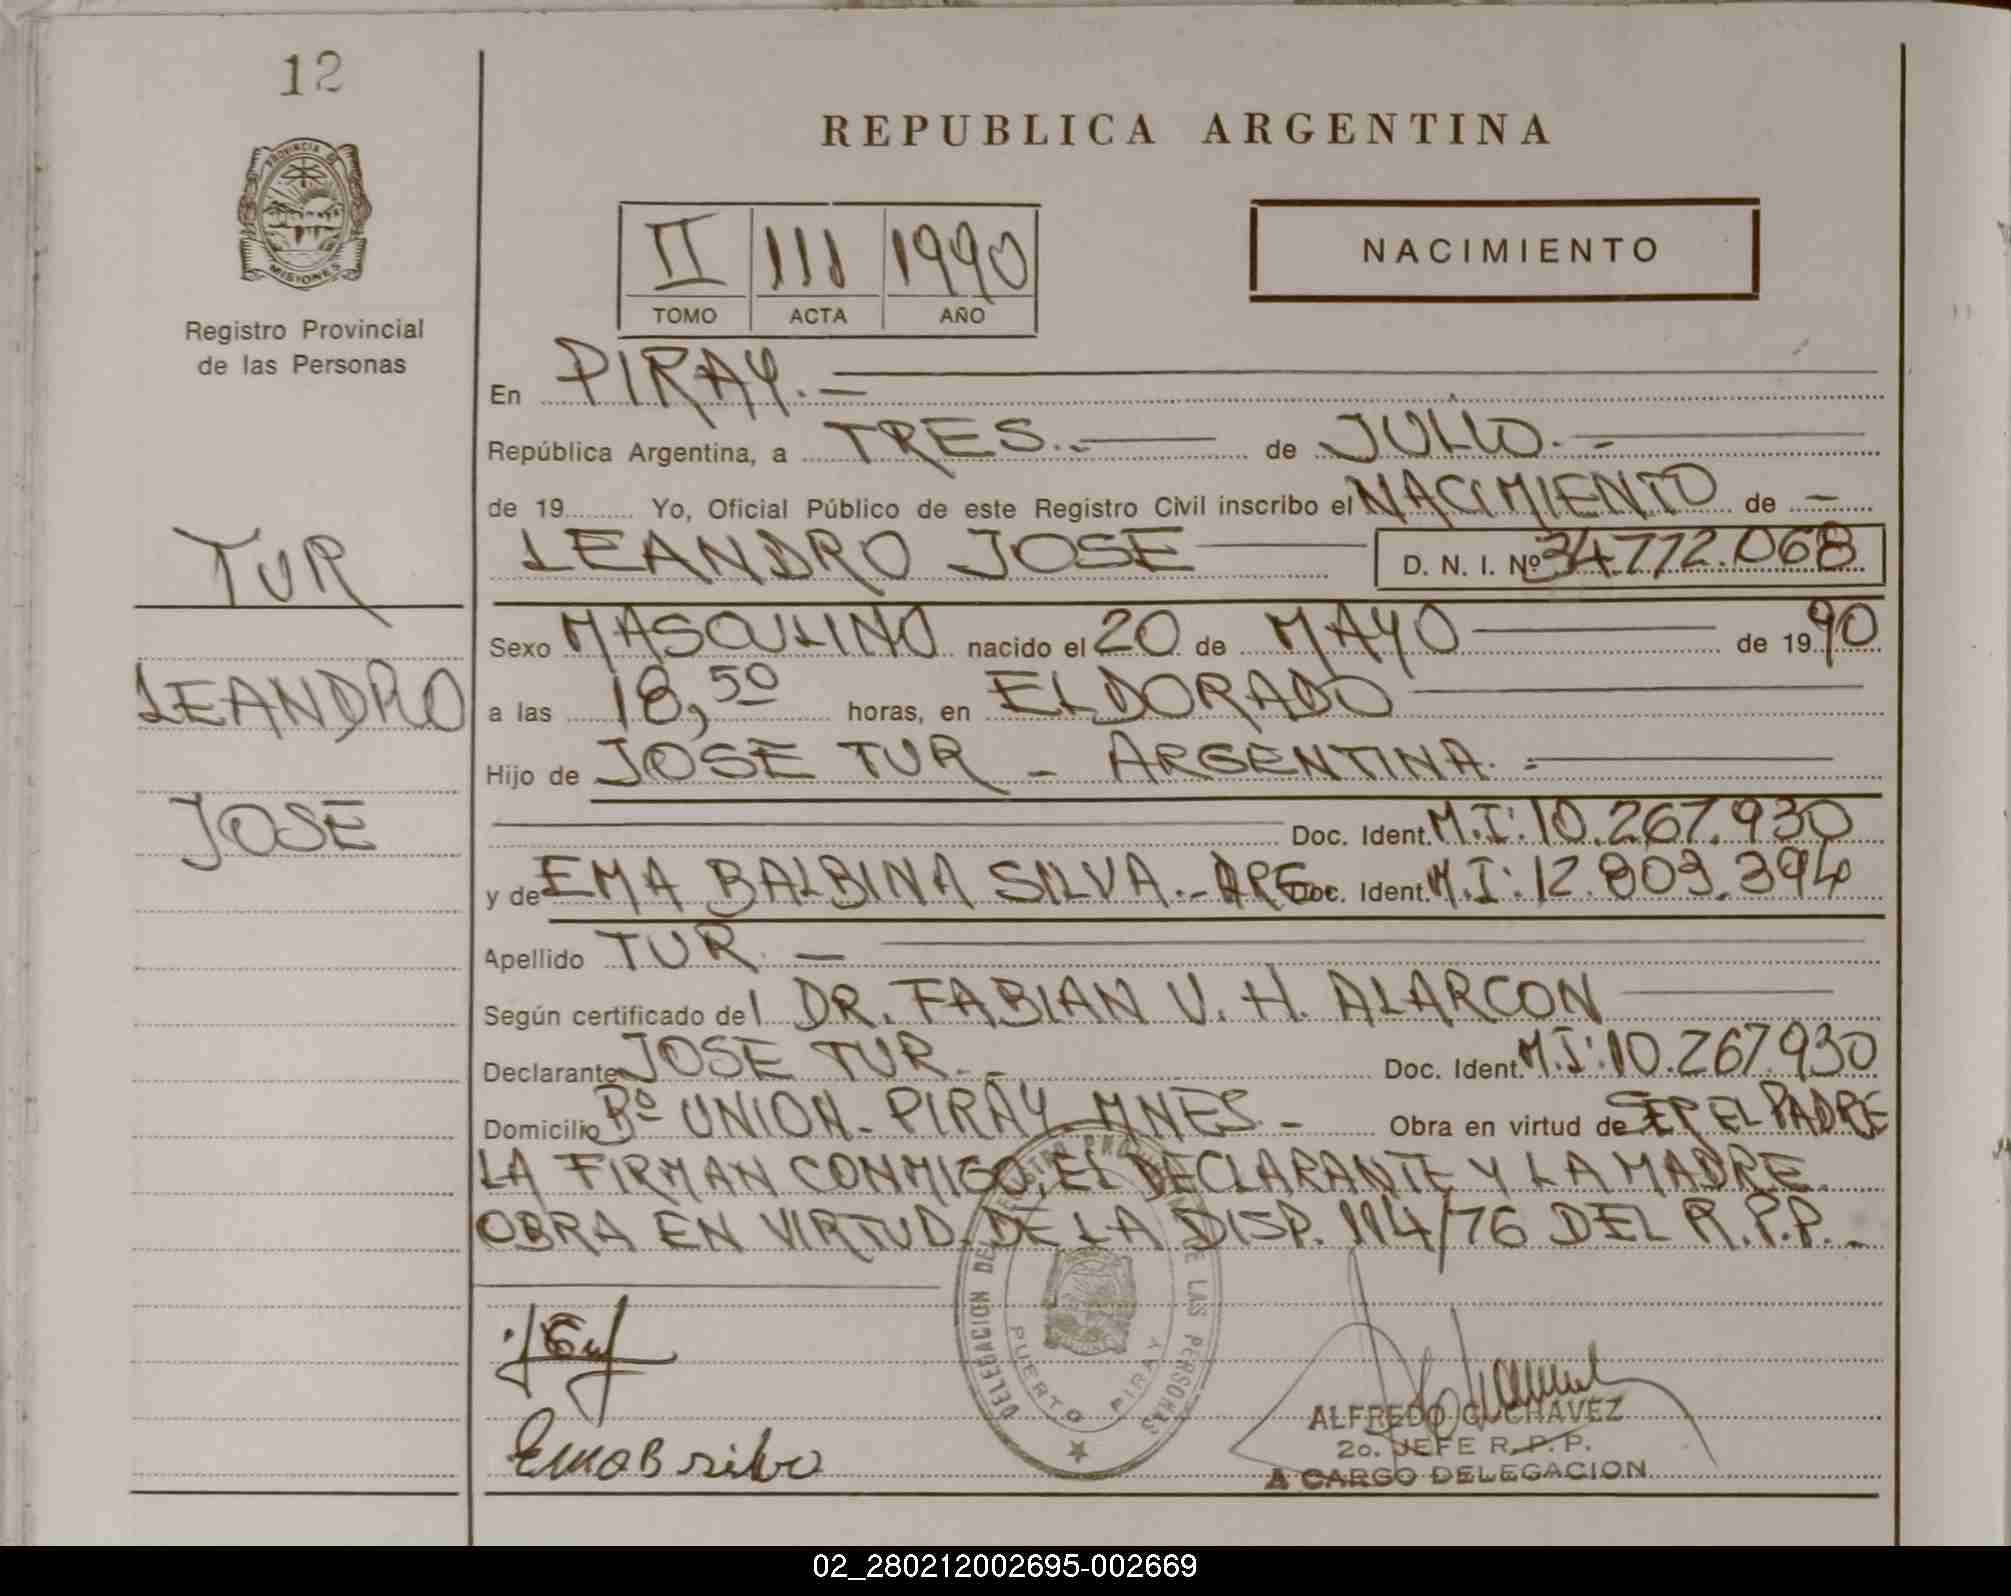 12
REPUBLICA ARGENTINA
PROVINCIA DE
MISIONES
Registro Provincial
de las Personas
II 111 1990
TOMO ACTA AÑO
NACIMIENTO
En PIRAY.—
República Argentina, a TRES.- de JULIO.-
de 19 Yo, Oficial Público de este Registro Civil inscribo el NACIMIENTO de —
LEANDRO JOSE D. N. I. Nº 34.772.068
TUR
LEANDRO
JOSE
Sexo MASCULINO nacido el 20 de MAYO de 1990
a las 18,50 horas, en ELDORADO
Hijo de JOSE TUR - ARGENTINA.-
Doc. Ident. M.I: 10.267.930
y de EMA BALBINA SILVA.- ARG Doc. Ident. M.I: 12.809.394
Apellido TUR. —
Según certificado del DR. FABIAN V. H. ALARCON
Declarante JOSE TUR.- Doc. Ident. M.I: 10.267.930
Domicilio Bº UNION- PIRAY- MNES.- Obra en virtud de SER EL PADRE
LA FIRMAN CONMIGO, EL DECLARANTE Y LA MADRE
OBRA EN VIRTUD DE LA DISP. 114/76 DEL R.P.P.-
DELEGACION DEL
DE LAS PERSONAS
PUERTO PIRAY
Ema B silva
ALFREDO G. CHAVEZ
2o. JEFE R. P. P.
A CARGO DELEGACION
02_280212002695-002669